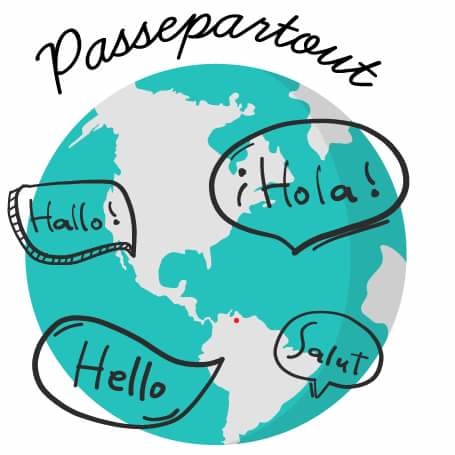 Passepartout
¡Hola!
Hallo!
Hello
Salut